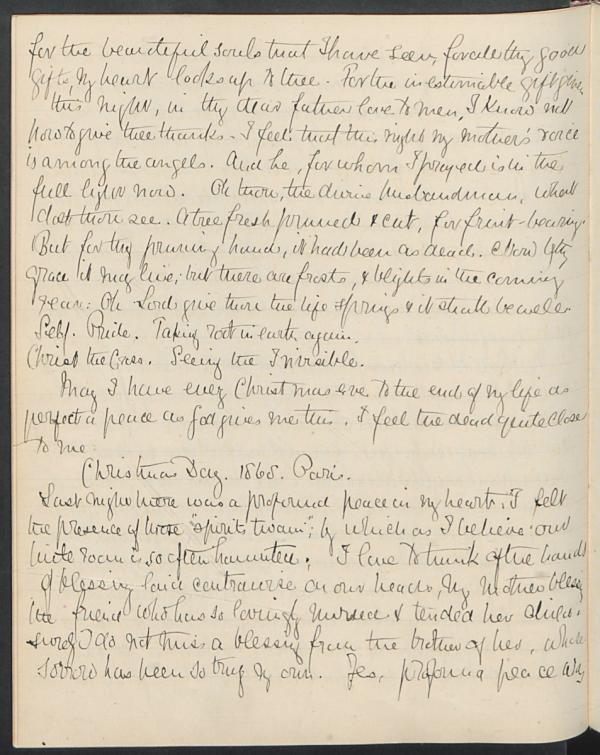 for the beautiful souls that I have seen, for all thy good
gifts, my heart looks up to thee. For the inestimable gift given
this night, in thy dear father love to men, I know not
how to give thee thanks. I feel that this night my mother's voice
is among the angels. And he, for whom I prayed is in the
full light now. Oh thou, the divine husbandman, what
dost thou see. A tree fresh pruned & cut, for fruit-bearing.
But for thy pruning hand, it had been as dead. Now by thy
grace it may live; but there are frosts, & blights in the coming
year: Oh Lord give thou the life springs & it shall be well.
Self. Pride. Taking root in earth again.
Christ the Cross. Seeing the Invisible.
May I have every Christmas eve to the end of my life as
perfect a peace as God gives me this. I feel the dead quite close
to me.
Christmas Day. 1868. Paris.
Last night there was a profound peace in my heart. I felt
the presence of those "spirits twain", by which as I believe our
little room is so often haunted. I love to think of the hands
of blessing laid on our heads, my mother blessing
the friend who has so lovingly nursed & tended her
I do not miss a blessing from the brother of her, whose
sorrow has been so truly my own. Yes, profound peace